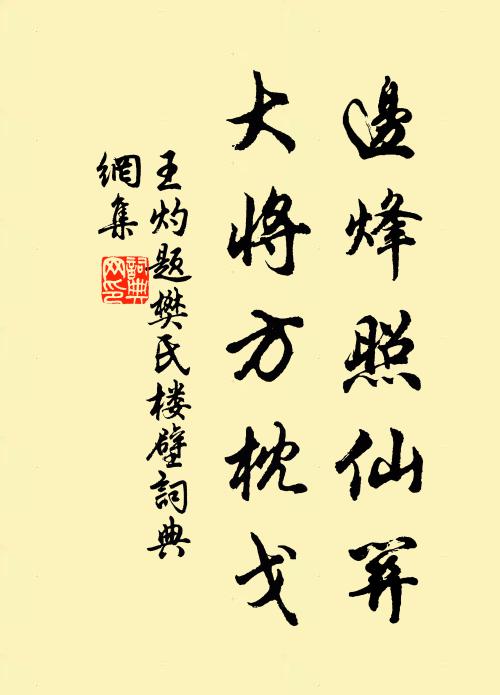 邊烽照仙笄
大將方枕戈
王灼题樊氏楼壁詞典
網集
詞典
网印